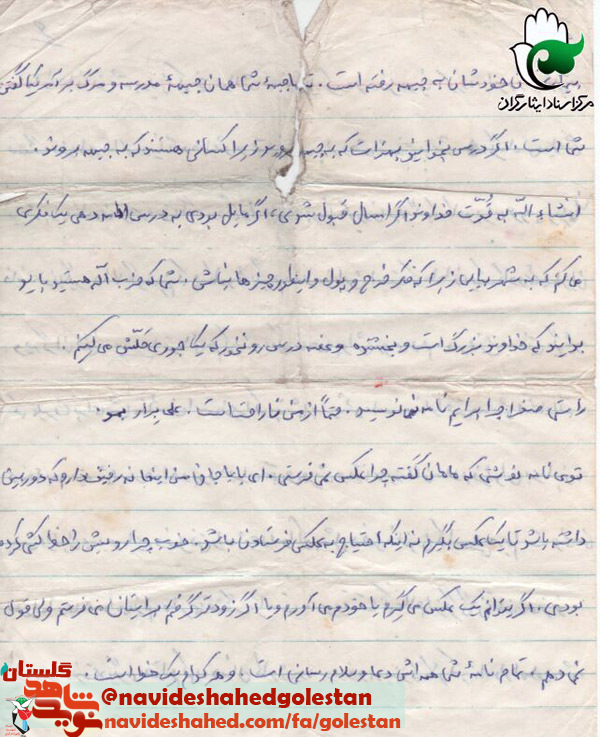 مرکز اسناد ایثارگران
خودشان به جبهه رفته است. جبههٔ شما همان جبههٔ مدرسه و مرگ بر آمریکا گفتن
شما است. اگر درس بخوانید بهتر است که به جبهه بروید زیرا کسانی هستند که به جبهه بروند.
انشاء الله به قُدرت خداوند اگر امسال قبول شوی، اگر مایل بودی به درس ادامه دهی یک فکری
می‌کنم که به شهر بیایی زیرا که فکر خرج و پول و اینطور چیزها نباشی. شما که حزب الهی هستید باید
بدانید که خداوند بزرگ است و بخشنده و غصه درس رو نخور که یک جوری حلّش می‌کنیم.
راستی صغرا چرا برایم نامه نمی‌نویسد. حتماً از من ناراحت است. علی برار
توی نامه نوشتی که مامان گفته چرا عکس نمی‌فرستی. ای بابا جان من اینجا نه رفیق دارم که دوربین
داشته باشد تا یک عکس بگیرم نه اینکه احتیاج به عکس فرستادن باشد. خوب چرا رویش را خط کشی کرده
بودی. اگر بتوانم یک عکس می‌گیرم یا خودم می‌آورم و یا اگر زودتر گرفتم برایتان می‌فرستم ولی قول
نمی‌دهم. تمام نامهٔ شما همه‌اش دعا و سلام رسانی است و هر کدام یک خط است.
گلستان
نوید شاهد
@navideshahedgolestan
navideshahed.com/fa/golestan